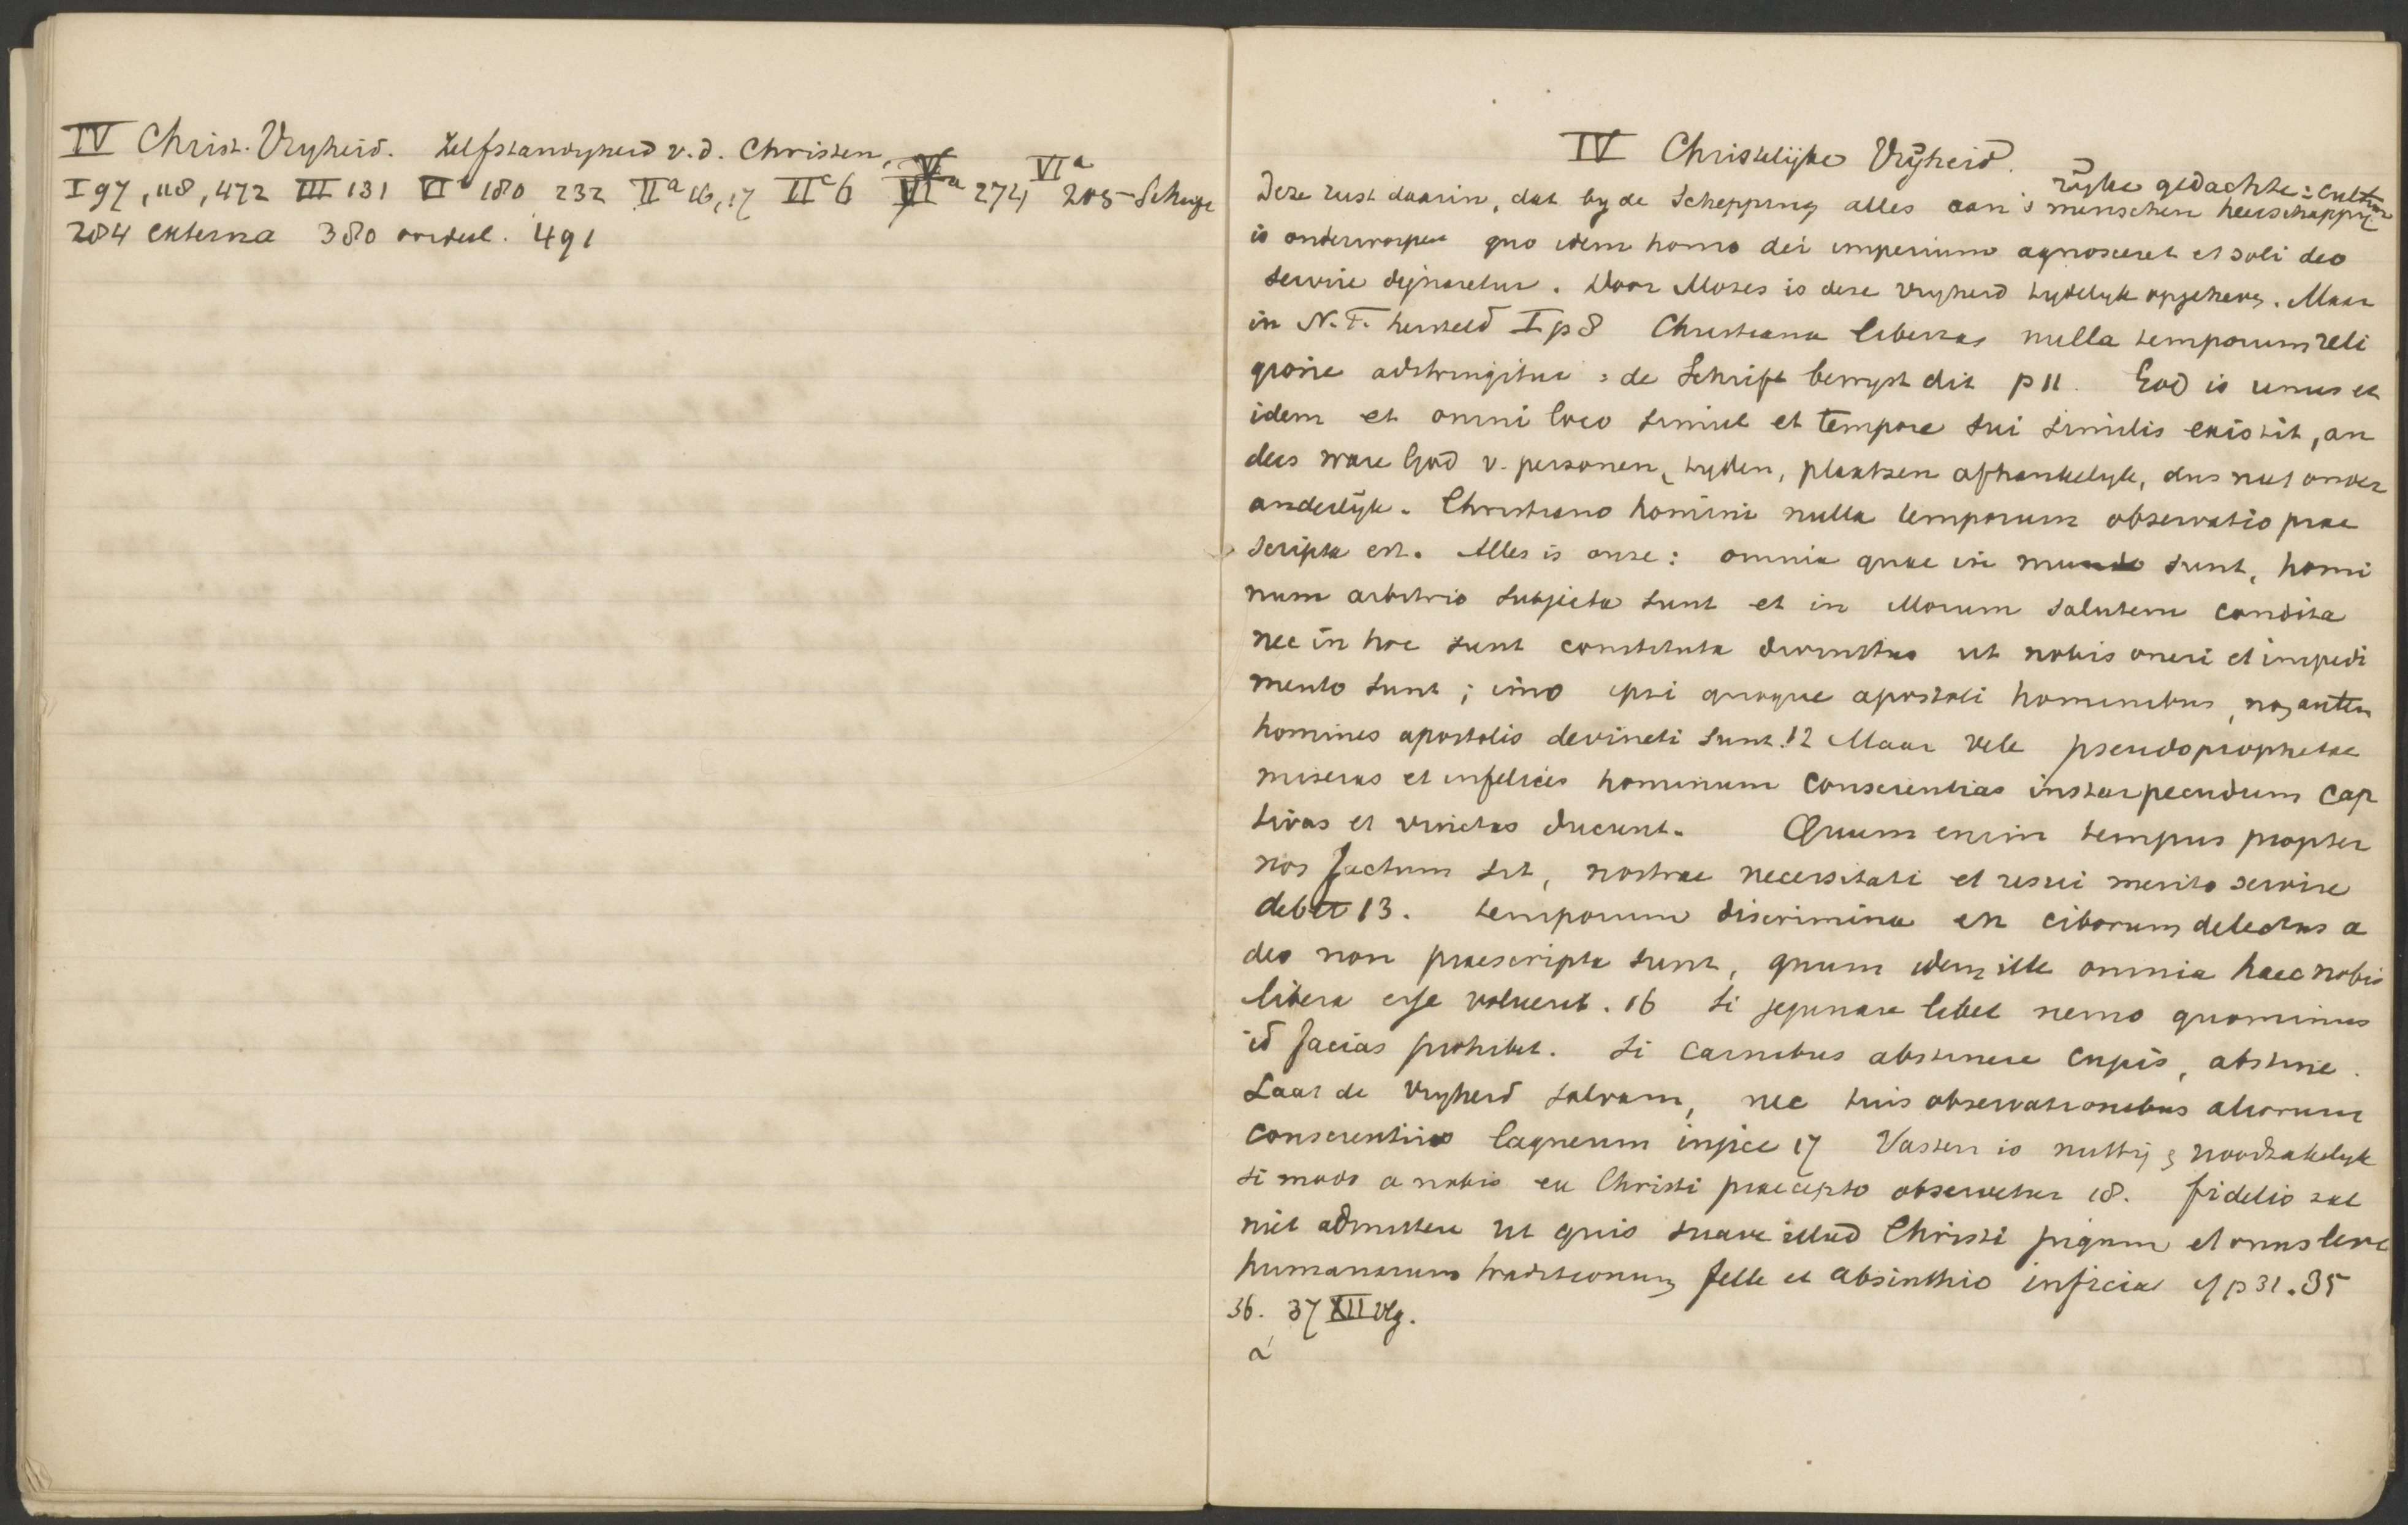 IV Christ. Vryheid. Zelfstandigheid v.d. Christen.
I 97, 118, 472 III 131 VI b 180 232 II a 16, 17 II c 6 VI a 274 VI a 205
284 externa 380 oordeel. 491
IV Christelijke Vrijheid.
rijke gedachte: Cultuur
Deze rust daarin, dat by de Schepping alles aan 's menschen heerschappij
is onderworpen quo idem homo dei imperium agnosceret et soli deo
servire dignaretur. Door Mozes is deze vryheid tydelyk opgeheven. Maar
in N.T. hersteld I p 8 Christiana libertas nulla temporum reli
gione adstringitur : de Schrift bewyst dit p 11. God is unus et
idem et omni loco simul et tempore sui similis existit, an
ders ware God v. personen, tyden, plaatsen afhankelyk, dus niet onver
anderlijk. Christiano homini nulla temporum observatio prae
scripta est. Alles is onze: omnia quae in mundo sunt, homi
num arbitrio subjecta sunt et in illorum salutem condita
nec in hoc sunt constituta divinitus ut nobis oneri et impedi
mento sunt; imo ipsi quoque apostoli hominibus, non autem
homines apostolis devincti sunt. 12 Maar vele pseudoprophetae
miseras et infelices hominum conscientias instar pecudum cap
tivas et vinctas ducunt. Quum enim tempus propter
nos factum sit, nostrae necessitati et usui merito servire
debet 13. temporum discrimina en ciborum delectus a
deo non praescripta sunt, quum idem ille omnia haec nobis
libera esse voluerit. 16 Si jejunare libet nemo quominus
id facias prohibet. Si carnibus abstinere cupis, abstine.
Laat de vryheid salvam, nec tuis observationibus aliorum
conscientiis laqueum injice 17 Vasten is nuttig & noodzakelyk
si modo a nobis ex Christi praecepto observetur 18. fidelis zal
niet admittere ut quis suave illud Christi jugum et onus leve
humanarum traditionum felle et absinthio inficiat cf p 31. 35
36. 37 XII vlg.
a